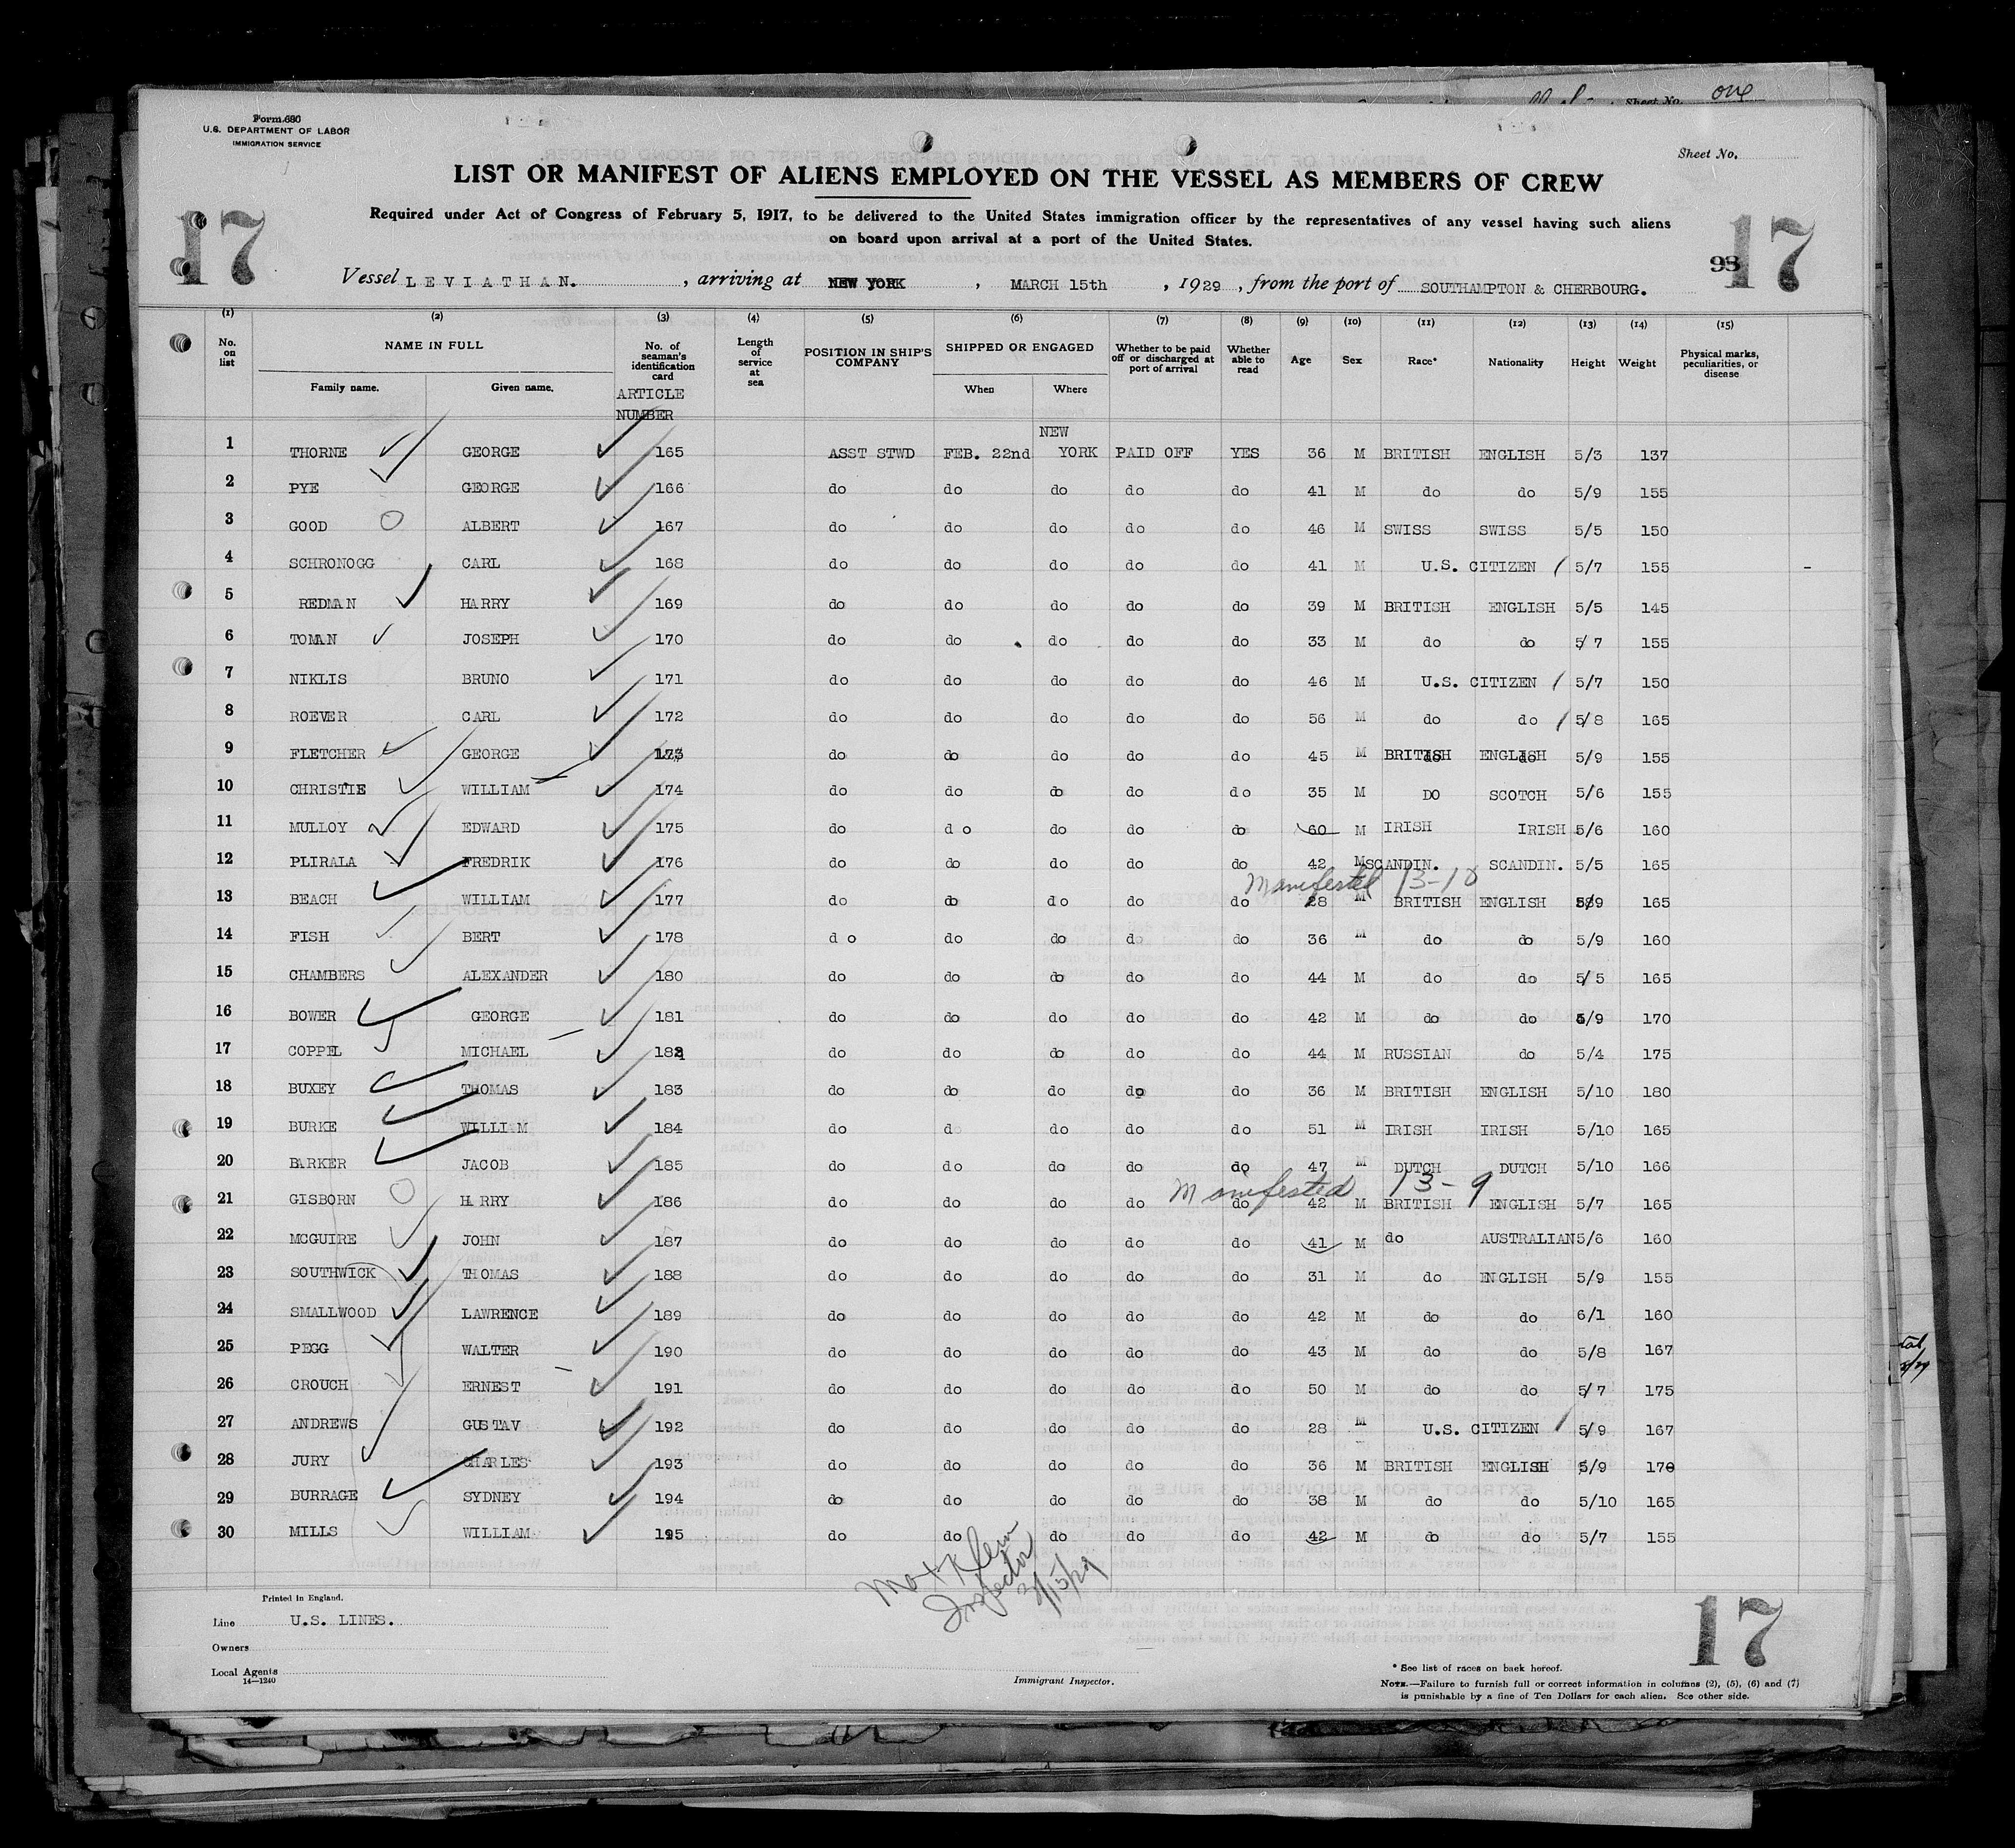 one
Sheet No.
Form 680
U.S. DEPARTMENT OF LABOR
IMMIGRATION SERVICE
Sheet No.
LIST OR MANIFEST OF ALIENS EMPLOYED ON THE VESSEL AS MEMBERS OF CREW
Required under Act of Congress of February 5, 1917, to be delivered to the United States immigration officer by the representatives of any vessel having such aliens
on board upon arrival at a port of the United States.
17 17
98
Vessel LEVIATHAN. , arriving at NEW YORK , MARCH 15th , 1929 , from the port of SOUTHAMPTON & CHERBOURG.
(1) (2) (3) (4) (5) (6) (7) (8) (9) (10) (11) (12) (13) (14) (15)
No. on list NAME IN FULL Family name. Given name. No. of seaman's identification card ARTICLE NUMBER Length of service at sea POSITION IN SHIP'S COMPANY SHIPPED OR ENGAGED When Where Whether to be paid off or discharged at port of arrival Whether able to read Age Sex Race* Nationality Height Weight Physical marks, peculiarities, or disease
1 THORNE GEORGE 165 ASST STWD FEB. 22nd NEW YORK PAID OFF YES 36 M BRITISH ENGLISH 5/3 137
2 PYE GEORGE 166 do do do do do 41 M do do 5/9 155
3 GOOD ALBERT 167 do do do do do 46 M SWISS SWISS 5/5 150
4 SCHRONOGG CARL 168 do do do do do 41 M U.S. CITIZEN 5/7 155
5 REDMAN HARRY 169 do do do do do 39 M BRITISH ENGLISH 5/5 145
6 TOMAN JOSEPH 170 do do do do do 33 M do do 5/7 155
7 NIKLIS BRUNO 171 do do do do do 46 M U.S. CITIZEN 5/7 150
8 ROEVER CARL 172 do do do do do 56 M do do 5/8 165
9 FLETCHER GEORGE 173 do do do do do 45 M BRITISH ENGLISH 5/9 155
10 CHRISTIE WILLIAM 174 do do do do do 35 M DO SCOTCH 5/6 155
11 MULLOY EDWARD 175 do do do do do 60 M IRISH IRISH 5/6 160
12 PLIRALA FREDRIK 176 do do do do do 42 M SCANDIN. SCANDIN. 5/5 165
Manifested 13-10
13 BEACH WILLIAM 177 do do do do do 28 M BRITISH ENGLISH 5/9 165
14 FISH BERT 178 do do do do do 36 M do do 5/9 160
15 CHAMBERS ALEXANDER 180 do do do do do 44 M do do 5/5 165
16 BOWER GEORGE 181 do do do do do 42 M do do 5/9 170
17 COPPEL MICHAEL 182 do do do do do 44 M RUSSIAN do 5/4 175
18 BUXEY THOMAS 183 do do do do do 36 M BRITISH ENGLISH 5/10 180
19 BURKE WILLIAM 184 do d do do do 51 M IRISH IRISH 5/10 165
20 BARKER JACOB 185 do do do do do 47 M DUTCH DUTCH 5/10 166
Manifested 13-9
21 GISBORN H RRY 186 do do do do do 42 M BRITISH ENGLISH 5/7 165
22 MCGUIRE JOHN 187 do do do do do 41 M do AUSTRALIAN 5/6 160
23 SOUTHWICK THOMAS 188 do do do do do 31 M do ENGLISH 5/9 155
24 SMALLWOOD LAWRENCE 189 do do do do do 42 M do do 6/1 160
25 PEGG WALTER 190 do do do do do 43 M do do 5/8 167
26 CROUCH ERNEST 191 do do do do do 50 M do do 5/7 175
27 ANDREWS GUSTAV 192 do do do do do 28 M U.S. CITIZEN 5/9 167
28 JURY CHARLES 193 do do do do do 36 M BRITISH ENGLISH 5/9 170
29 BURRAGE SYDNEY 194 do do do do do 38 M do do 5/10 165
30 MILLS WILLIAM 195 do do do do do 42 M do do 5/7 155
Max Klein
Inspector
3/15/29
Printed in England.
Line U.S. LINES.
Owners
Local Agents
14—1240
Immigrant Inspector.
17
* See list of races on back hereof.
NOTE.—Failure to furnish full or correct information in columns (2), (5), (6) and (7)
is punishable by a fine of Ten Dollars for each alien. See other side.